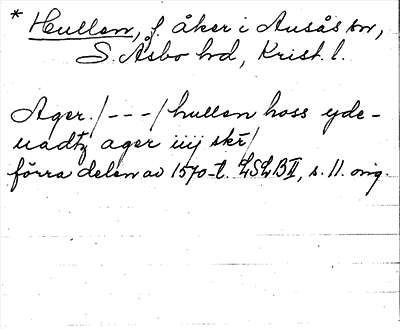 * Hullen, f. åker i Ausås sn,
S. Åsbo hd, Krist. l.
Ager. /---/ hullen hoss yde-
uadtz ager iiij skr/
förra delen av 1570-t. LSLB II, s. 11. orig.